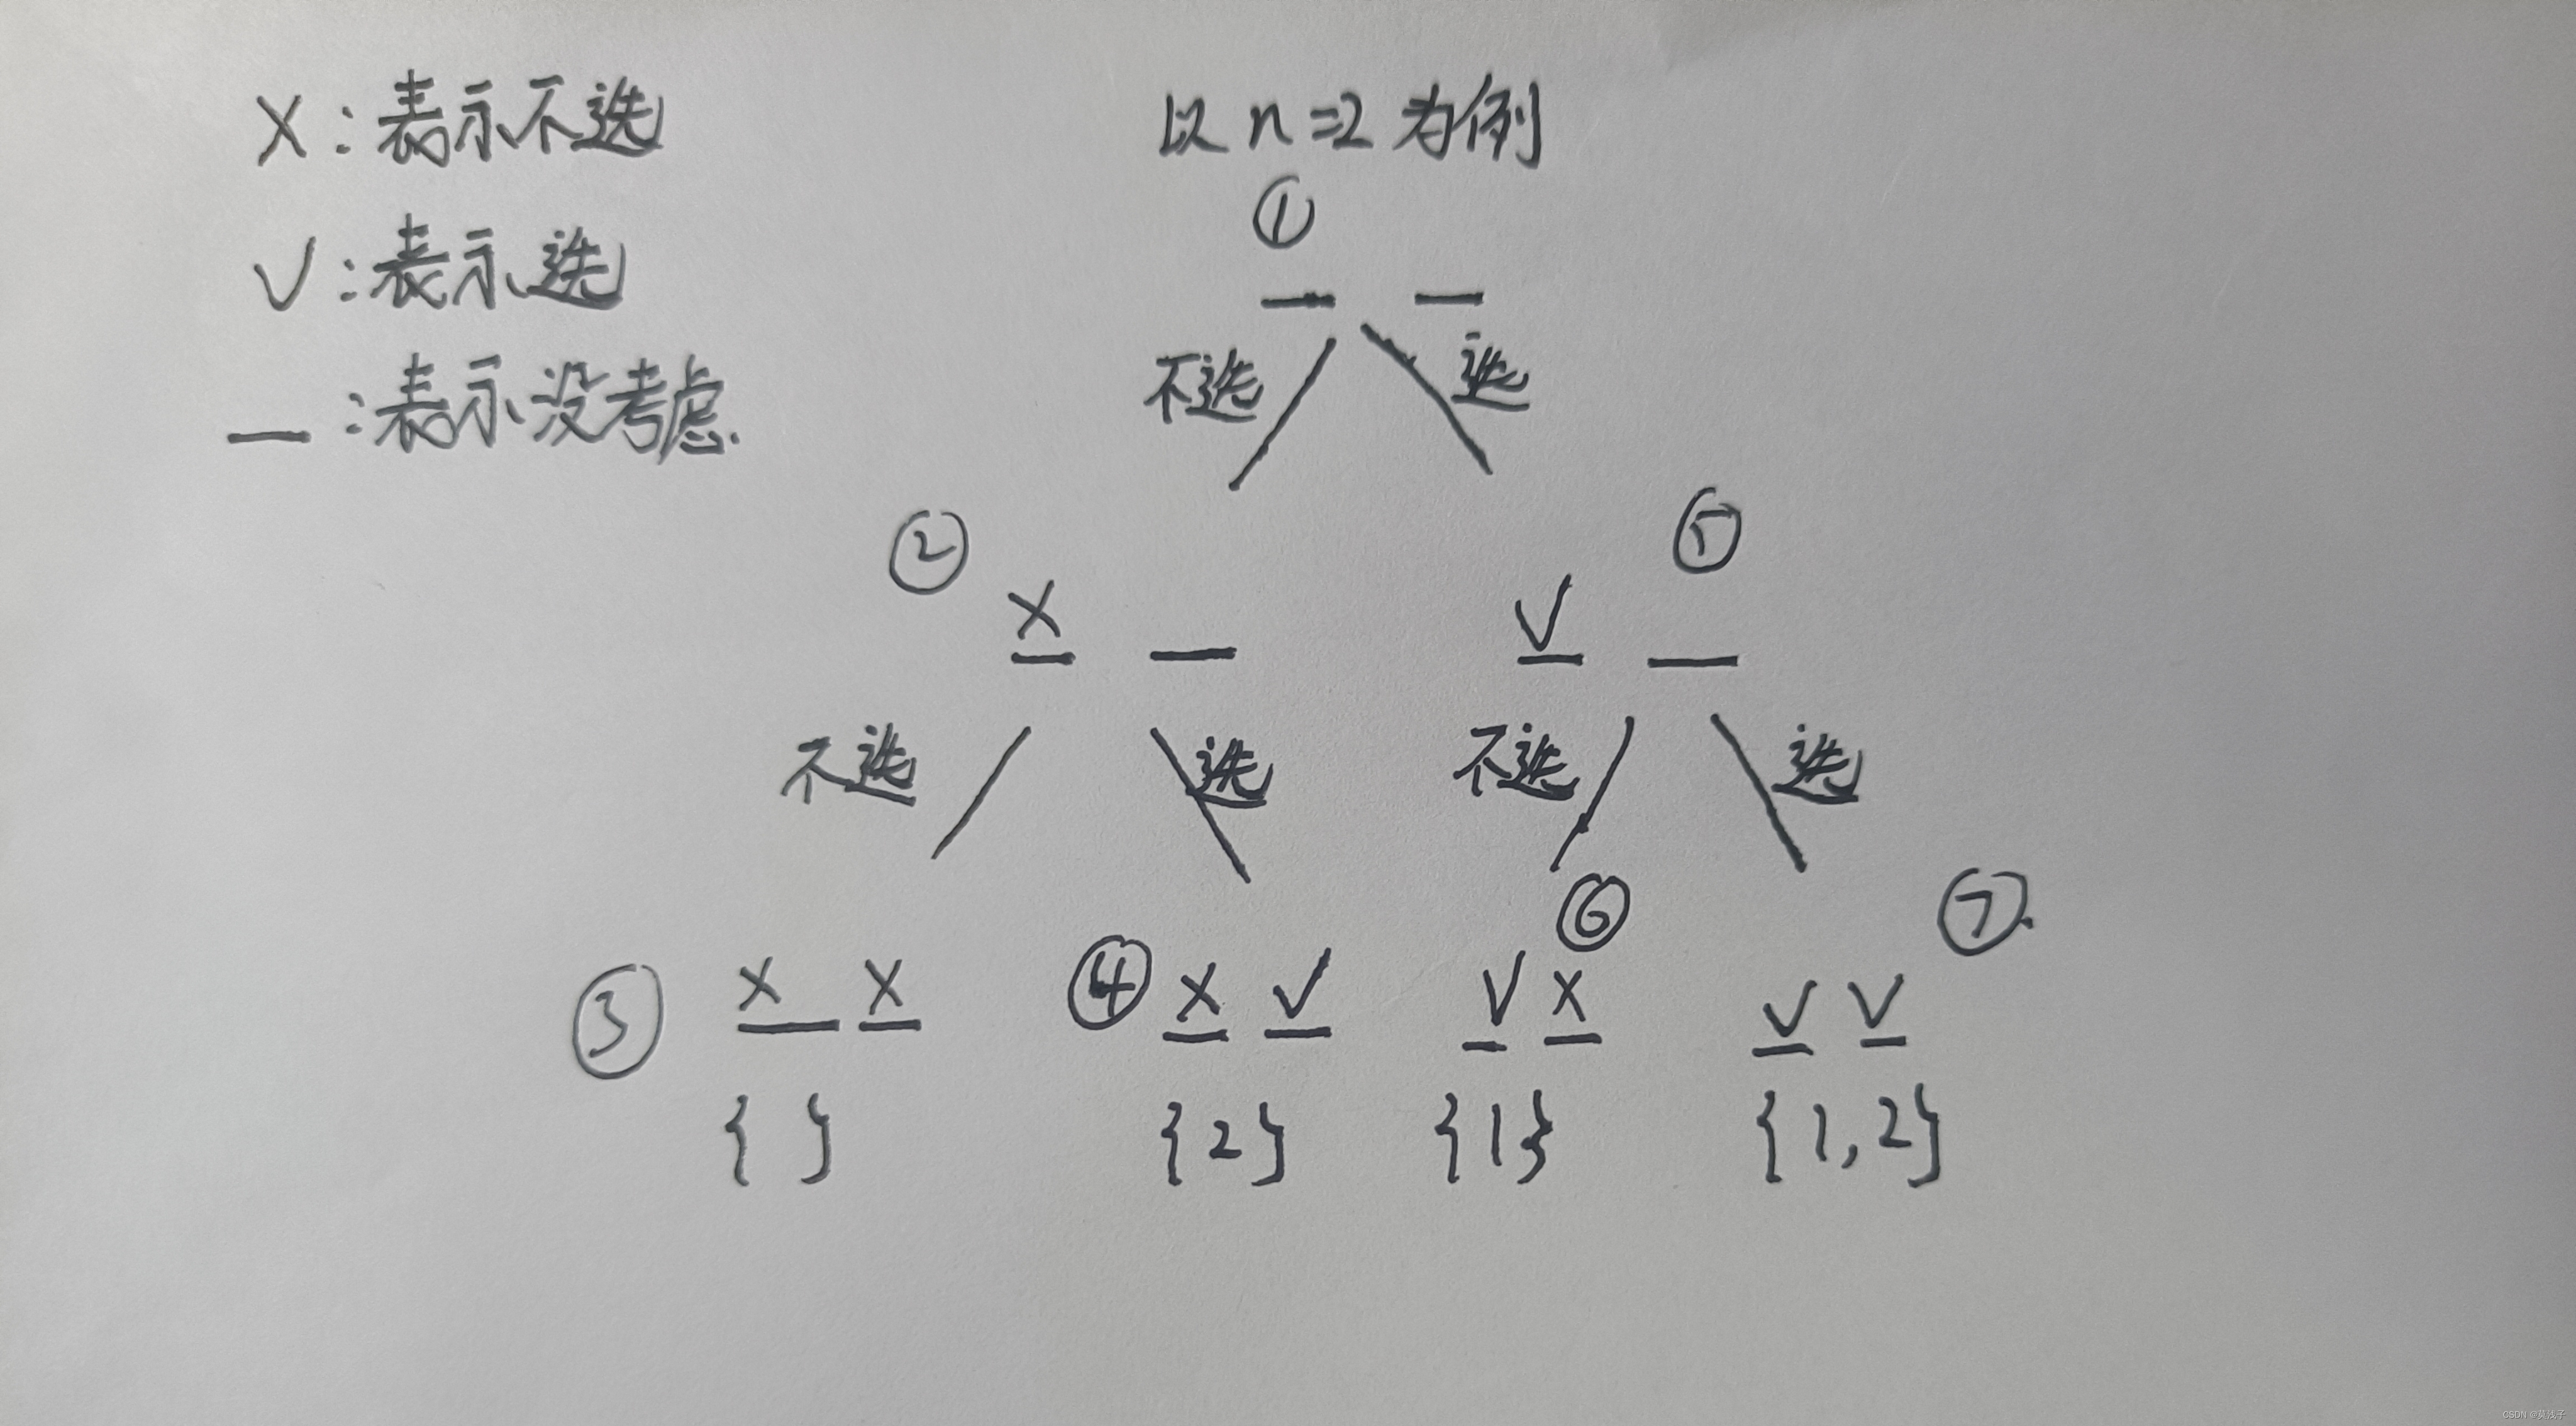 X：表示不选
以 n=2 为例
√：表示选
—：表示没考虑.
①
不选 选
② ⑤
X √
不选 选 不选 选
⑥ ⑦
③ X X ④ X √ √ X √ √
{ } {2} {1} {1,2}
CSDN @莫浅子